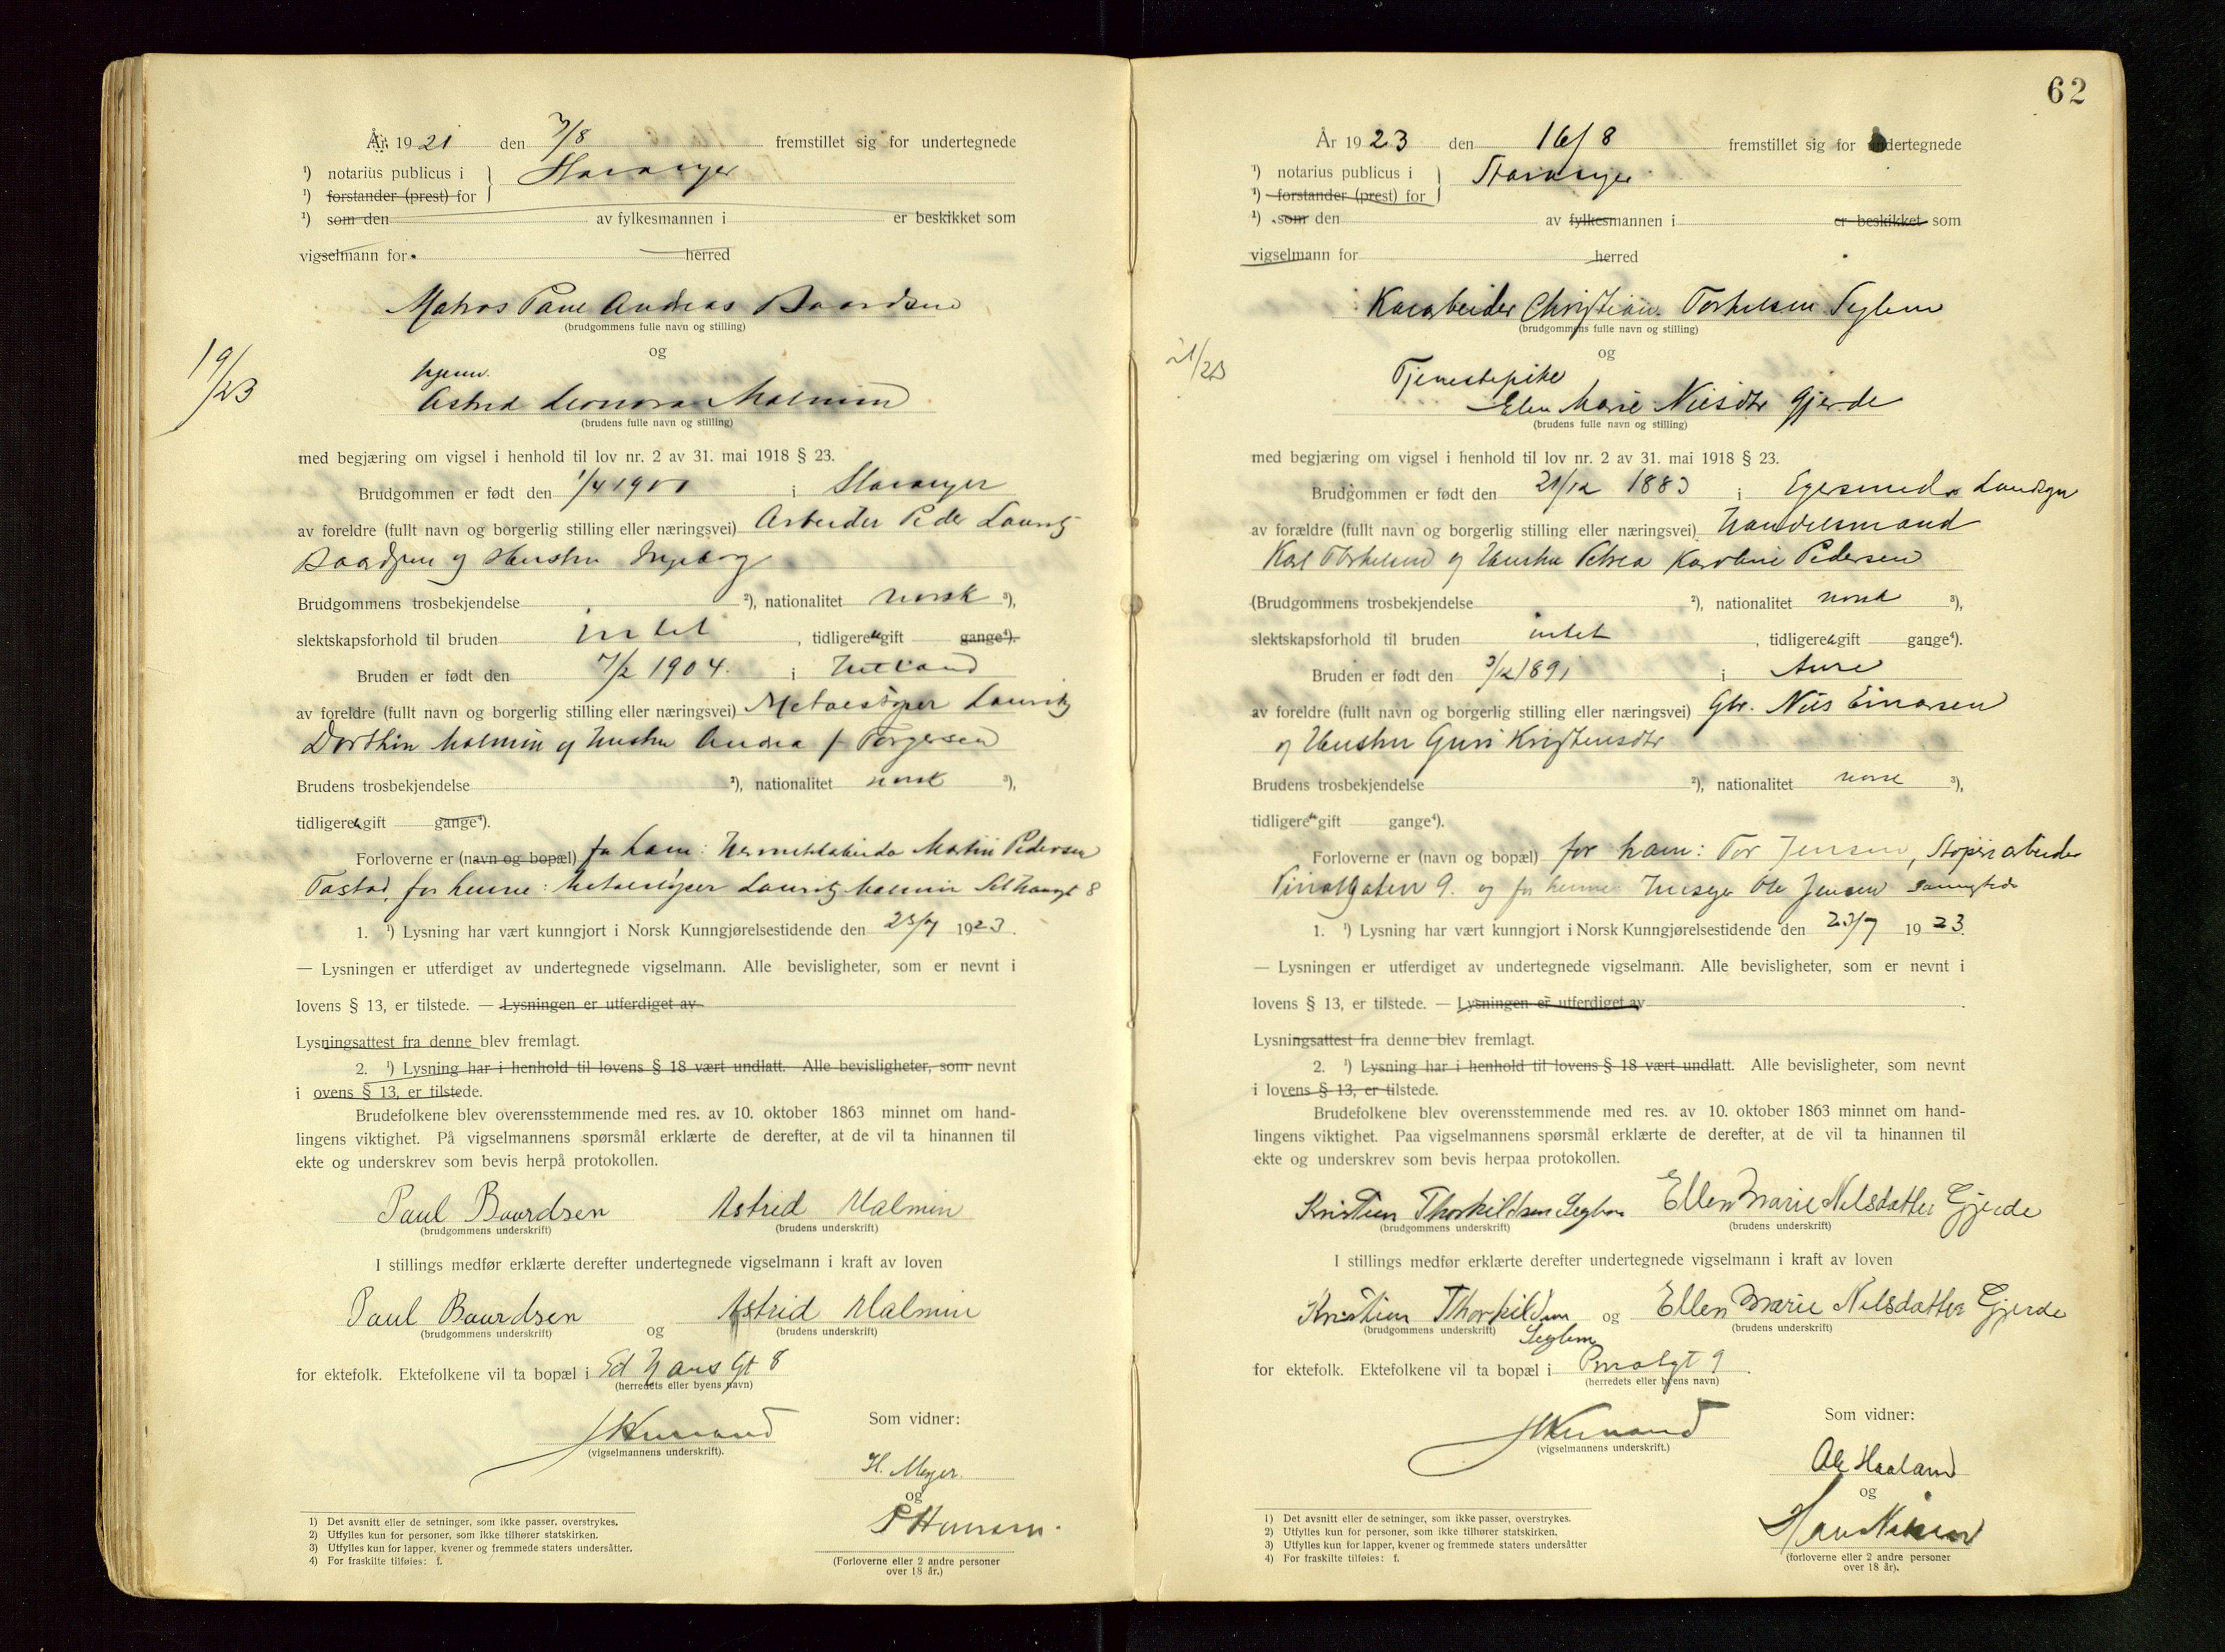 År 1921 den 7/8 fremstillet sig for undertegnede
¹) notarius publicus i
¹) forstander (prest) for } Stavanger
¹) som den av fylkesmannen i er beskikket som
vigselmann for herred
Matros Paul Andreas Baardsen
(brudgommens fulle navn og stilling)
og
19/23
hjem.
Astrid Leonora Malmin
(brudens fulle navn og stilling)
med begjæring om vigsel i henhold til lov nr. 2 av 31. mai 1918 § 23.
Brudgommen er født den 1/4 1901 i Stavanger
av foreldre (fullt navn og borgerlig stilling eller næringsvei) Arbeider Peder Lauritz
Baardsen og Hustru Ingeborg
Brudgommens trosbekjendelse ²), nationalitet norsk ³),
slektskapsforhold til bruden intet, tidligere gift gange⁴).
Bruden er født den 7/2 1904. i Hetland
av foreldre (fullt navn og borgerlig stilling eller næringsvei) Metalstøper Lauritz
Dorthin Malmin og Hustru Andrea f Torgersen
Brudens trosbekjendelse ²), nationalitet norsk ³),
tidligere gift gange⁴).
Forloverne er (navn og bopæl) for ham: Hermetikarbeider Martin Pedersen
Tastad, for henne: Metalstøper Lauritz Malmin 8
1. ¹) Lysning har vært kunngjort i Norsk Kunngjørelsestidende den 23/7 1923.
— Lysningen er utferdiget av undertegnede vigselmann. Alle bevisligheter, som er nevnt i
lovens § 13, er tilstede. — Lysningen er utferdiget av
Lysningsattest fra denne blev fremlagt.
2. ¹) Lysning har i henhold til lovens § 18 vært undlatt. Alle bevisligheter, som nevnt
i ovens § 13, er tilstede.
Brudefolkene blev overensstemmende med res. av 10. oktober 1863 minnet om hand-
lingens viktighet. På vigselmannens spørsmål erklærte de derefter, at de vil ta hinannen til
ekte og underskrev som bevis herpå protokollen.
Paul Baardsen Astrid Malmin
(brudgommens underskrift) (brudens underskrift)
I stillings medfør erklærte derefter undertegnede vigselmann i kraft av loven
Paul Baardsen og Astrid Malmin
(brudgommens underskrift) (brudens underskrift)
for ektefolk. Ektefolkene vil ta bopæl i Ed Hans Gt 8
(herredets eller byens navn)
(vigselmannens underskrift).
Som vidner:
H. Meyer.
og
P Hansen.
(Forloverne eller 2 andre personer
over 18 år.)
1) Det avsnitt eller de setninger, som ikke passer, overstrykes.
2) Utfylles kun for personer, som ikke tilhører statskirken.
3) Utfylles kun for lapper, kvener og fremmede staters undersåtter.
4) For fraskilte tilføies: f.
62
År 1923 den 16/8 fremstillet sig for undertegnede
¹) notarius publicus i
¹) forstander (prest) for } Stavanger
¹) som den av fylkesmannen i er beskikket som
vigselmann for herred
Kaiarbeider Christian Torkelsen Seglem
(brudgommens fulle navn og stilling)
og
21/23
Tjenestepike
Elen Marie Nilsdtr Gjerde
(brudens fulle navn og stilling)
med begjæring om vigsel i henhold til lov nr. 2 av 31. mai 1918 § 23.
Brudgommen er født den 21/12 1883 i Egersunds Landsogn
av forældre (fullt navn og borgerlig stilling eller næringsvei) Handelsmand
Karl Torkelsen og Hustru Petrea Karoline Pedersen
(Brudgommens trosbekjendelse ²), nationalitet norsk ³),
slektskapsforhold til bruden intet, tidligere gift gange⁴).
Bruden er født den 3/12 1891 i Aure
av foreldre (fullt navn og borgerlig stilling eller næringsvei) Gbr. Nils Einarsen
og Hustru Guri Kristensdtr
Brudens trosbekjendelse ²), nationalitet norsk ³),
tidligere gift gange⁴).
Forloverne er (navn og bopæl) for ham: Tor Jensen, Støperiarbeider
9. og for henne Ole Jensen samsteds
1. ¹) Lysning har vært kunngjort i Norsk Kunngjørelsestidende den 23/7 1923.
— Lysningen er utferdiget av undertegnede vigselmann. Alle bevisligheter, som er nevnt i
lovens § 13, er tilstede. — Lysningen er utferdiget av
Lysningsattest fra denne blev fremlagt.
2. ¹) Lysning har i henhold til lovens § 18 vært undlatt. Alle bevisligheter, som nevnt
i lovens § 13, er tilstede.
Brudefolkene blev overensstemmende med res. av 10. oktober 1863 minnet om hand-
lingens viktighet. Paa vigselmannens spørsmål erklærte de derefter, at de vil ta hinannen til
ekte og underskrev som bevis herpaa protokollen.
Kristian Thorkildsen Seglem Ellen Marie Nilsdatter Gjerde
(brudgommens underskrift) (brudens underskrift)
I stillings medfør erklærte derefter undertegnede vigselmann i kraft av loven
Kristian Thorkildsen Seglem og Ellen Marie Nilsdatter Gjerde
(brudgommens underskrift) (brudens underskrift)
for ektefolk. Ektefolkene vil ta bopæl i 9
(herredets eller byens navn)
(vigselmannens underskrift.)
Som vidner:
Ole Haaland
og
Hans Nilsen
(forloverne eller 2 andre personer
over 18 år).
1) Det avsnitt eller de setninger, som ikke passer, overstrykes.
2) Utfylles kun for personer, som ikke tilhører statskirken.
3) Utfylles kun for lapper, kvener og fremmede staters undersåtter
4) For fraskilte tilføies: f.